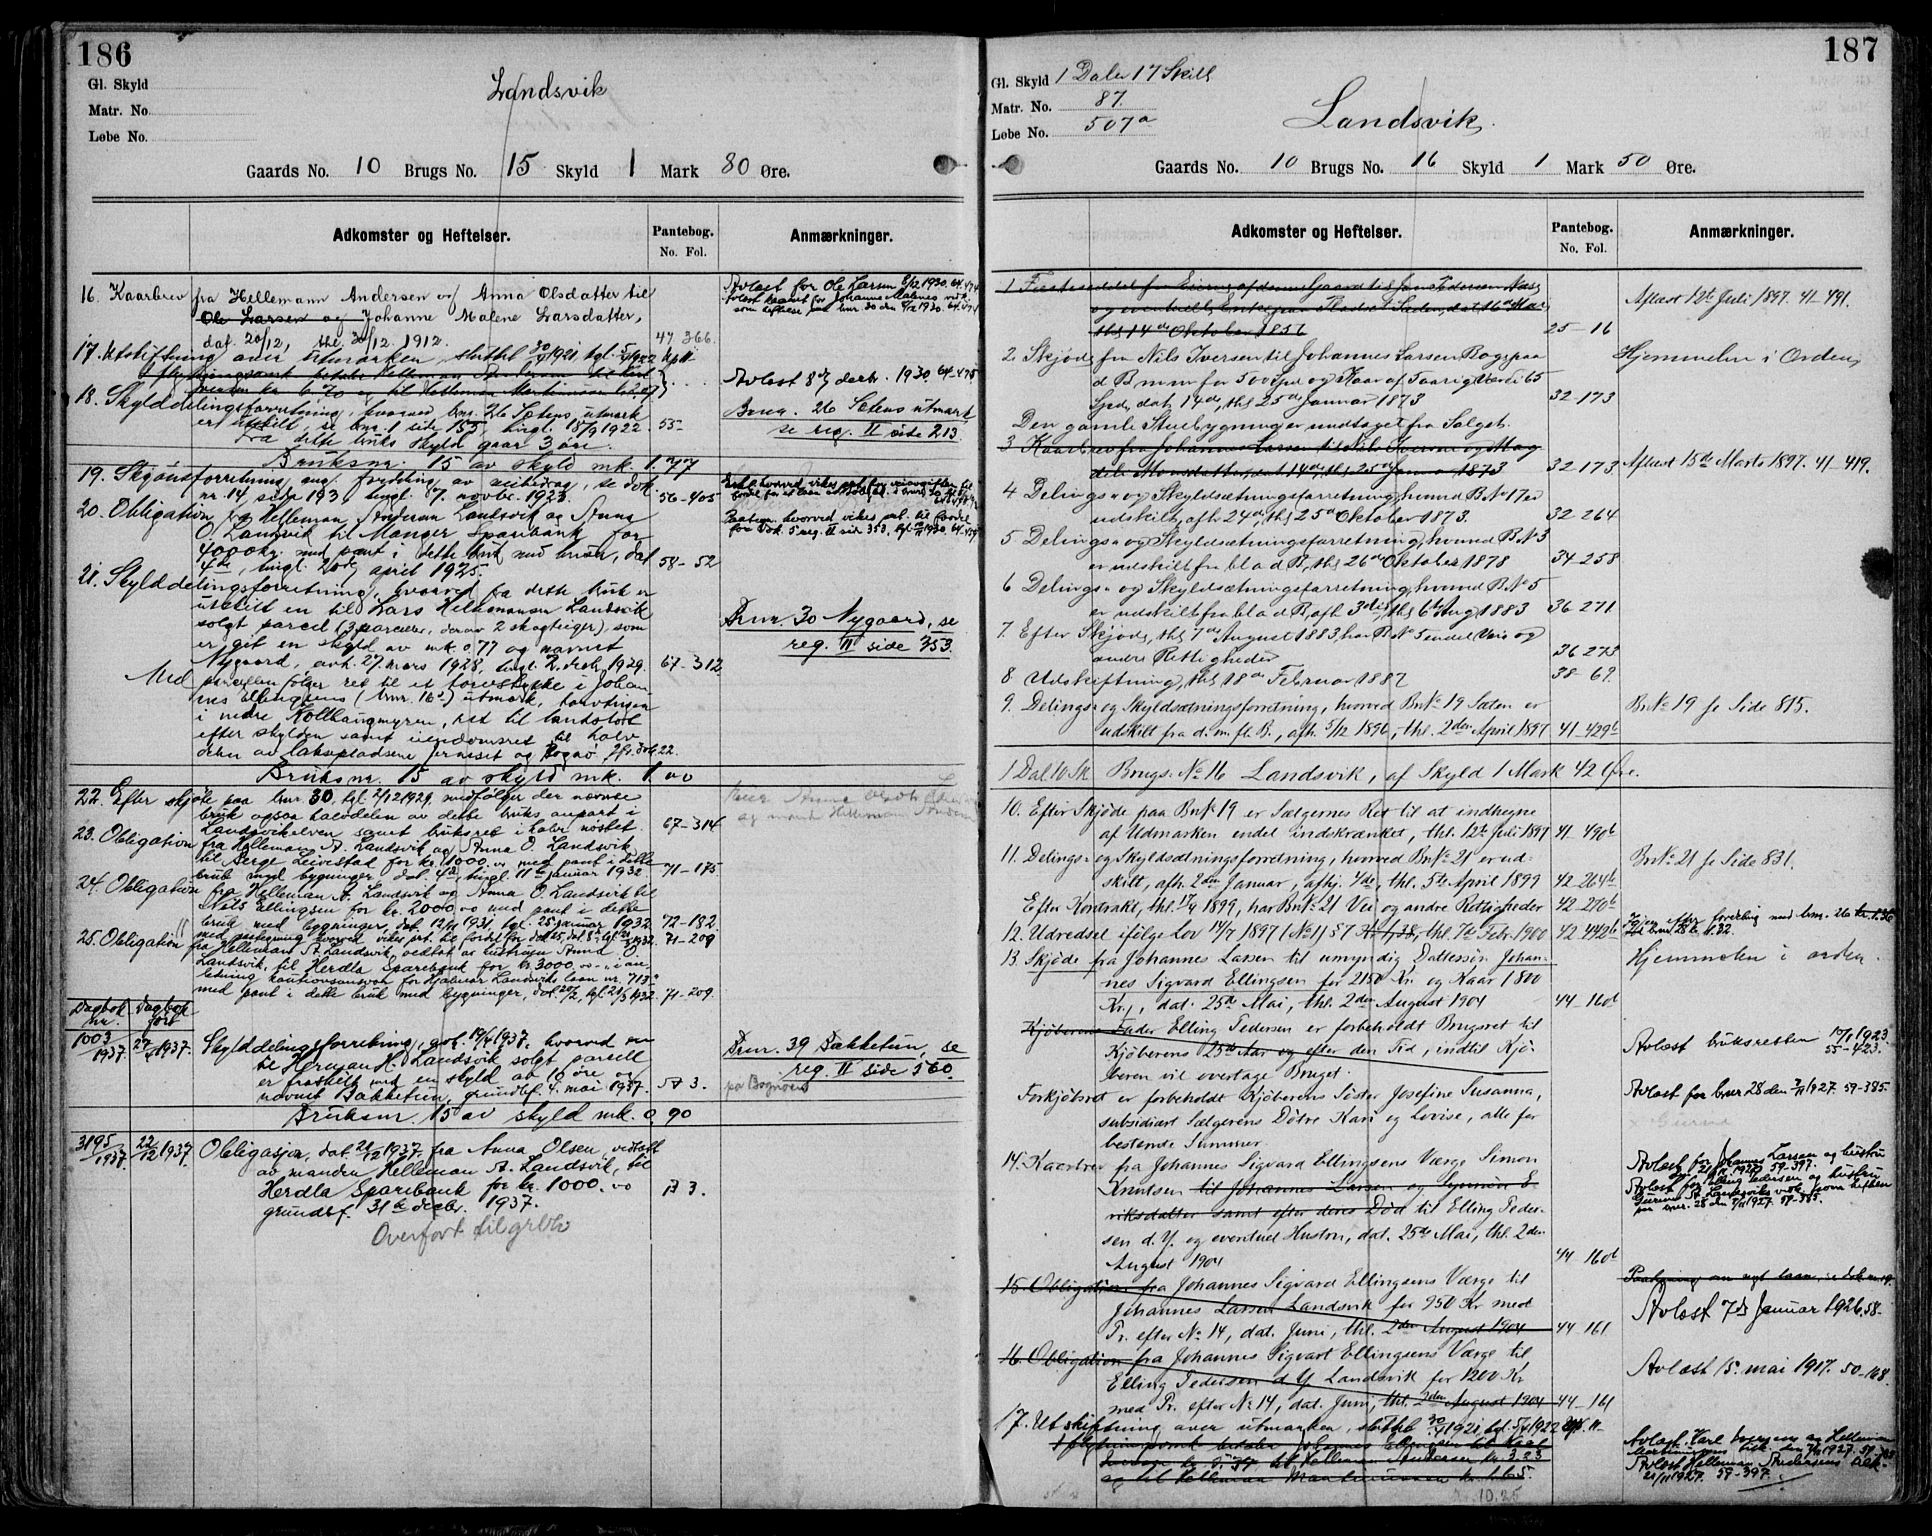 186
Gl. Skyld
Matr. No.
Løbe No.
Landsvik
Gaards No. 10 Brugs No. 15 Skyld 1 Mark 80 Øre.
Adkomster og Heftelser.
Pantebog.
No. Fol.
Anmærkninger.
16. Kaarbrev fra Hellemann Andersen og Anna Olsdatter til
Ole Larsen og Johanne Malene Larsdatter,
dat. 20/12, thl. 30/12. 1912.
47. 366.
Avløst for Ole Larsen
17. Utskiftning over utmarken sluttet 30/4 1921 tgl. 5/1 1922
Avløst 8de decbr. 1930. 64-475
18. Skylddelingsforretning, hvorved bnr. 26 Sætens utmark
er utskilt, se bnr. 1 side 155, tingl. 18/9 1922.
55-
Fra dette bruks skyld gaar 3 øre.
Brnr. 26 Sætens utmark
se reg. II side 213.
Bruksnr. 15 av skyld mk. 1.77
19. Skjønsforretning ang. fordeling av veibidrag, se dok
nr. 14, side 193 tingl. 7. novbr. 1923.
56-405
20. Obligation fra Helleman Andersen Landsvik og Anna
O. Landsvik til Manger Sparebank for
4000 kr. med pant i dette bruk med husar, dat
4de, tingl. 20de april 1925.
58-52
21. Skylddelingsforretning, hvorved fra dette bruk er
utskilt en til Lars Hellemansen Landsvik
solgt parcel (3 parceller, derav 2 skogteiger) som
er git en skyld av mk. 0.77 og navnet
Nygaard, avh. 27. mars 1928, tingl. 2. dcbr. 1929.
67-312.
Brnr. 30 Nygaard, se
reg. II side 353.
Med parcellen følger ret til et torvstykke i Johan
nes Ellingsens (bnr. 16's) utmark, torvteigen
i nedre Kollhaugmyren, ret til landslott
efter skylden samt eiendomsret til halv
delen av laksepladsene
Bruksnr. 15 av skyld mk. 1.00
22. Efter skjøte paa bnr 30, tgl. 2/12 1929, medfølger der nævnte
bruk ogsaa halvdelen av dette bruks anpart i
Landsvikelven samt bruksret i halv nøstet.
67-314
23. Obligation fra Helleman A. Landsvik og Anna O. Landsvik
til Børge Leivestad for kr. 1000.00 med pant i dette
bruk med bygninger, dat. 4de, tingl. 11te januar 1932.
71-175
24. Obligation fra Helleman A. Landsvik og Anna O. Landsvik til
Nils Ellingsen for kr. 2000.00 med pant i dette
bruk med bygninger, dat. 12/11 1931, tgl. 25 januar 1932.
72-182.
71-209
25. Obligation fra Hellemann A. Landsvik, vedtat av hustruen Anna O.
Landsvik, til Herdla Sparebank for kr. 3000.00
ledning kautionsansvar for Hjalmar Landsviks laan nr. 713
med pant i dette bruk med bygninger, dat. 20/2, tgl. 21/3 1932.
71-209.
Dagbok nr.
Dagbok ført
1003/1937. 27/4 1937.
Skylddelingsforretning, avh. 19/4 1937. hvorved en
til Herman H. Landsvik solgt parsell
er fraskilt med en skyld av 10 øre og
navnet Bakketun, grundbf. 4. mai 1937.
A 3.
Brnr. 39 Bakketun, se
reg. II side 560.
på Bognøen
Bruksnr. 15 av skyld mk. 0.90
3195/1937. 22/12 1937.
Obligasjon, dat. 21/12 1937, fra Anna Olsen, vedtatt
av manden Helleman A. Landsvik, til
Herdla Sparebank for kr. 1000.00
grundbf. 31te decbr. 1937.
B 3.
Overført til grbk
187
Gl. Skyld 1 Daler 17 Skill
Matr. No. 87.
Løbe No. 507a
Landsvik.
Gaards No. 10 Brugs No. 16 Skyld 1 Mark 50 Øre.
Adkomster og Heftelser.
Pantebog.
No. Fol.
Anmærkninger.
thl. 14de Oktober 1857
25-16
Aflæst 12te Juli 1897. 41-491.
2. Skjøde fra Nils Iversen til Johannes Larsen Rogn paa
d B m m for 500 Spd og Kaar af Faarig Værdi 65
Spd, dat. 14de, thl. 25de Januar 1873
32-173
Hjemmelen i Orden.
Den gamle Stuebygning er undtaget fra Salget.
3. Kaarbrev fra Johannes Larsen til Nils Iversen og Mag
dele Monsdatter, dat 14de, thl. 25de Januar 1873
32 173
Aflæst 15de Marts 1897. 41-419.
4 Delings- og Skyldsætningsforretning, hvorved B No 17 er
udskilt, afh. 24de, thl. 25de Oktober 1873.
32 264
5 Delings- og Skyldsætningsforretning, hvorved B No 3
er udskilt fra bl a d B, thl. 26de Oktober 1878
34-258
6 Delings- og Skyldsætningsforretning, hvorved B No 5
er udskilt fra bl a d B, afh. 3die, thl. 6te Aug 1883
36 271
7. Efter Skjøde, thl. 7de August 1883, har B No 5 endel Veie og
andre Rettigheder
36 273
8 Udskiftning, thl. 18de Februar 1887
38-69.
9. Delings- og Skyldsætningsforretning, hvorved BrNo 19 Sæten er
udskilt fra d. m. fl. B., afh. 5/12 1896, thl. 2den April 1897
41-429b
BNo 19 se Side 815.
1 Dal 10 Sk Brugs No 16 Landsvik, af Skyld 1 Mark 42 Øre.
10. Efter Skjøde paa BNo 19 er Sælgernes Ret til at indhegne
af Udmarken endel indskrænket, thl. 12te Juli 1897
41-490b
11. Delings- og Skyldsætningsforretning, hvorved BNo 21 er ud-
skilt, afh. 2den Januar, afhj. 4de, thl. 5te April 1899
42-264b
BNo 21 se Side 831.
Efter Kontrakt, thl. 17/4 1899, har BNo 21 Vei og andre Rettigheder
42-270b
12. Udredsel ifølge Lov 14/7 1897 (No 1) 57 Kr. 1,38, thl. 7de Febr. 1900
42 442b
13. Skjøde fra Johannes Larsen til umyndig Dattersøn Johan-
nes Sigvard Ellingsen for 2150 Kr. og Kaar 1800
Kr., dat. 25de Mai, thl. 2den August 1904
44 160b
Hjemmelen i orden.
Kjøberens Fader Elling Pedersen er forbeholdt Brugsret til
Kjøberens 25de Aar og efter den Tid, indtil Kjø-
beren vil overtage Bruget.
Avlæst bruksretten 10/1 1923.
55-423.
Forkjøbsret er forbeholdt Kjøberens Søster Josefine Susanna,
subsidiært Sælgerens Døtre Kari og Lovise, alle for
bestemte Summer.
Avlæst for bnr 28 den 7/11 1927. 59-385.
14. Kaarbrev fra Johannes Sigvard Ellingsens Værge Simon
Knutsen til Johannes Larsen og Synnøve E
riksdatter samt efter deres Død til Elling Peder-
sen d. Y. og eventuel Hustru, dat. 25de Mai, thl. 2den
August 1904
44 160b
Avløst for Johannes Larsen og hustru
den 21/11 1927. 59-397.
Avløst for Elling Pedersen og hustru
15. Obligation fra Johannes Sigvard Ellingsens Værge til
Johannes Larsen Landsvik for 950 Kr. med
Pr. efter No 14, dat. Juni, thl. 2den August 1904
44 161
Avløst 7de Januar 1926. 58-
16. Obligation fra Johannes Sigvart Ellingsens Værge til
Elling Pedersen d Y Landsvik for 1200 Kr
med Pr. efter No 14, dat. Juni, thl. 2den August 1904
44-161
Avlæst 15. mai 1917. 50-168.
17. Utskiftning over utmarken, sluttet 30/4 1921, tgl. 5/1 1922
og til Helleman Martinussen kr. 1.65.
10.25